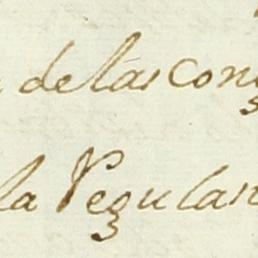 delas con
la Regulan